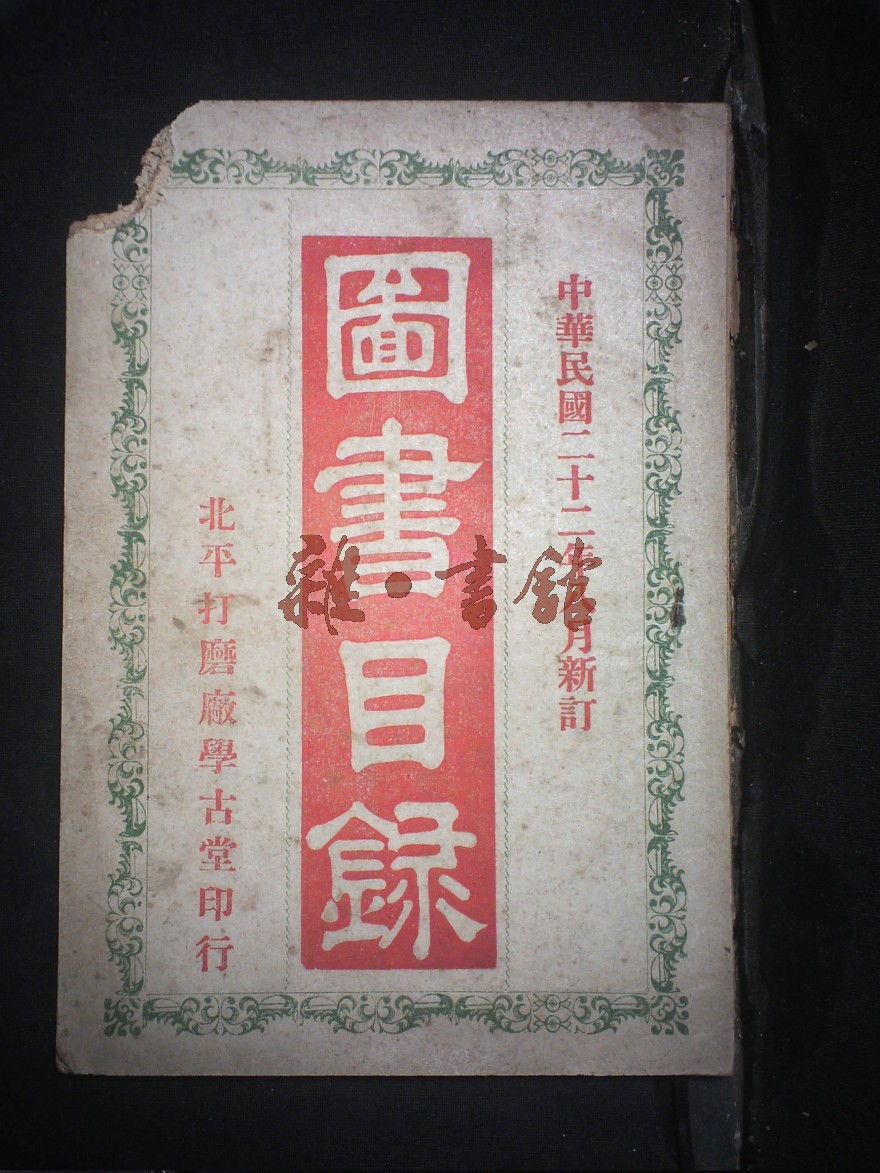 中華民國二十二年 月新訂
圖書目錄
北平打磨廠學古堂印行
雜·書館